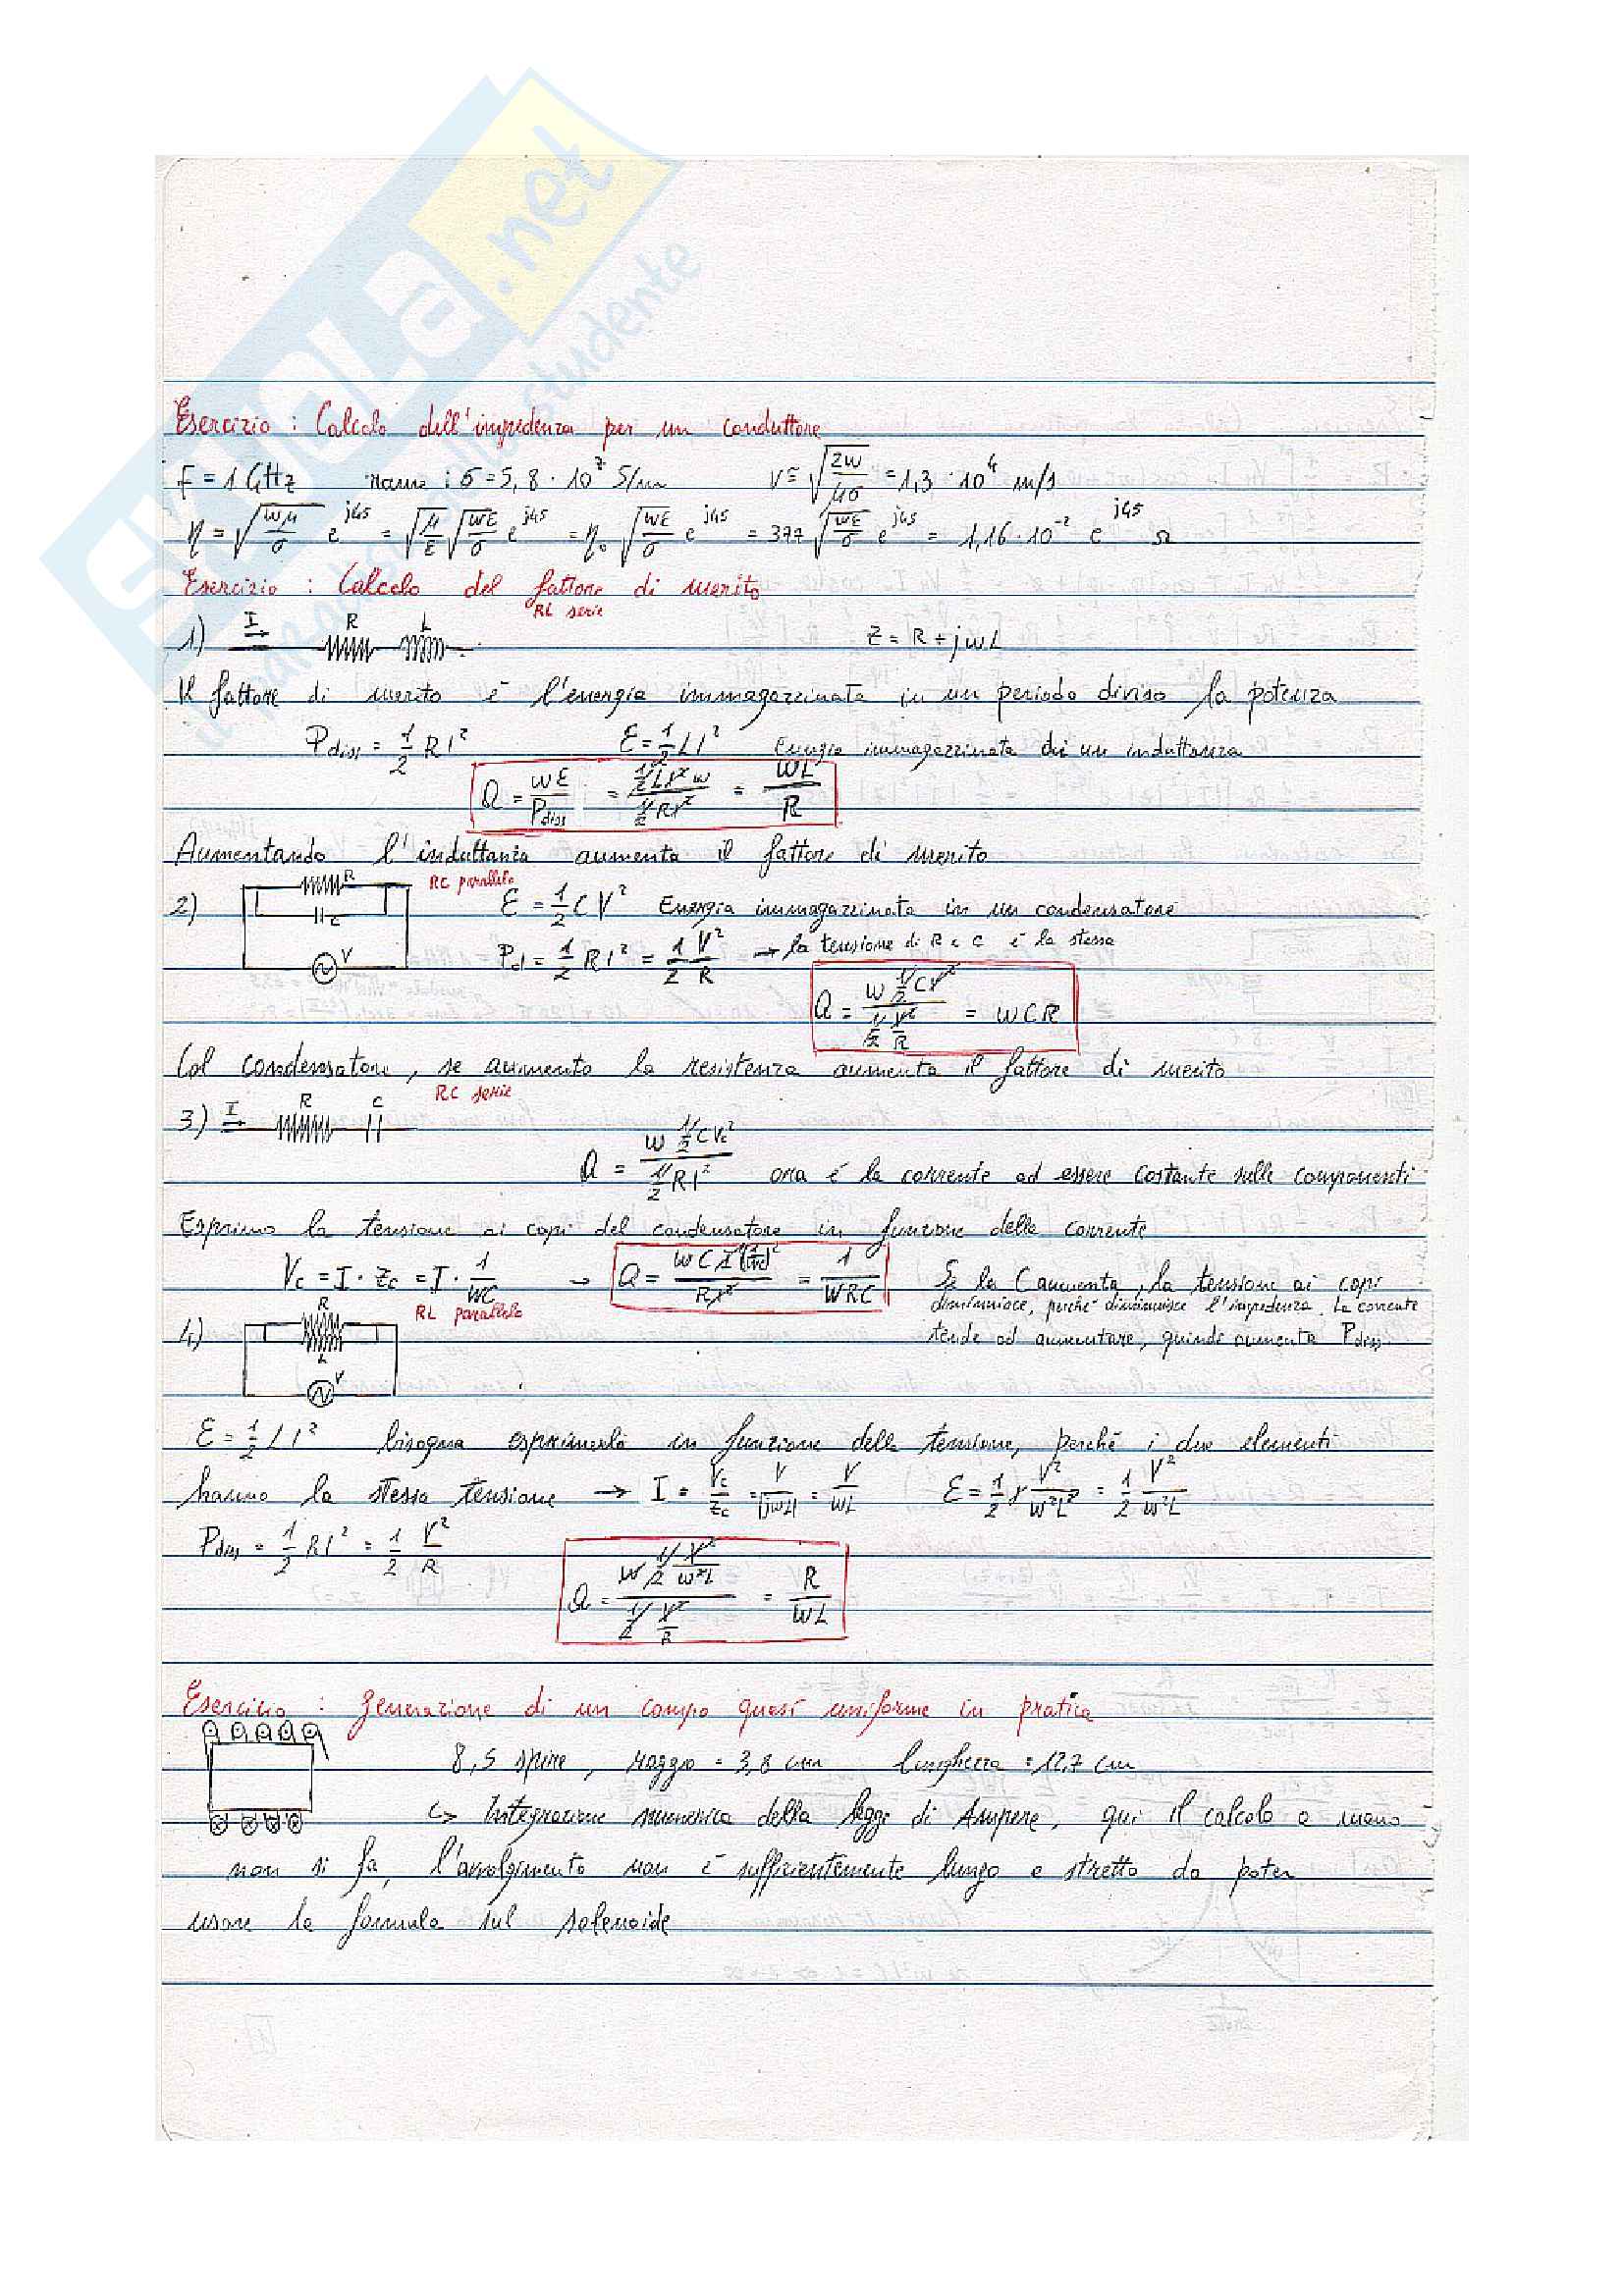 SKUOLA.net
il paradiso dello studente
Esercizio : Calcolo dell'impedenza per un conduttore
F = 1 GHz rame : σ = 5,8 · 10^7 S/m v = √(2w/μσ) = 1,3 · 10^4 m/s
η = √(wμ/σ) e^j45 = √(μ/ε) √(wε/σ) e^j45 = η₀ √(wε/σ) e^j45 = 377 √(wε/σ) e^j45 = 1,16 · 10^-2 e^j45 Ω
Esercizio : Calcolo del fattore di merito
RL serie
1) I R L Z = R + jwL
Il fattore di merito è l'energia immagazzinata in un periodo diviso la potenza
P diss = 1/2 R I² E = 1/2 L I² Energia immagazzinata di un induttanza
Q = wE/P diss = (1/2 L I² w)/(1/2 R I²) = wL/R
Aumentando l'induttanza aumenta il fattore di merito
RC parallelo
2) R C V E = 1/2 C V² Energia immagazzinata in un condensatore
Pd = 1/2 R I² = 1/2 V²/R → la tensione di R e C è la stessa
Q = (w 1/2 C V²)/(1/2 V²/R) = wCR
Col condensatore, se aumento la resistenza aumenta il fattore di merito
RC serie
3) I R C
Q = (w 1/2 C Vc²)/(1/2 R I²) ora è la corrente ad essere costante sulle componenti
Esprimo la tensione ai capi del condensatore in funzione della corrente
Vc = I · Zc = I · 1/wC → Q = (w C I² (1/wC)²)/(R I²) = 1/wRC Se la C aumenta, la tensione ai capi
diminuisce, perché diminuisce l'impedenza. La corrente
RL parallelo
4) R L V tende ad aumentare, quindi aumenta P diss.
E = 1/2 L I² bisogna esprimerla in funzione della tensione, perché i due elementi
hanno la stessa tensione → I = Vc/Zc = V/|jwL| = V/wL E = 1/2 L V²/w²L² = 1/2 V²/w²L
P diss = 1/2 R I² = 1/2 V²/R
Q = (w 1/2 V²/w²L)/(1/2 V²/R) = R/wL
Esercizio : generazione di un campo quasi uniforme in pratica
8,5 spire, raggio = 3,8 cm lunghezza = 12,7 cm
↳ Integrazione numerica della legge di Ampere, qui il calcolo a mano
non si fa, l'avvolgimento non è sufficientemente lungo e stretto da poter
usare la formula sul solenoide